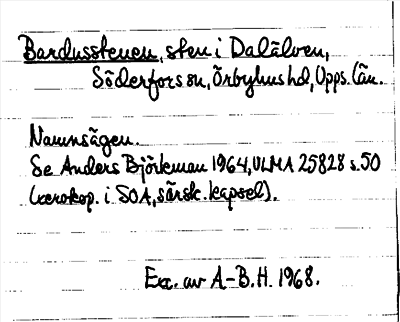 Bardusstenen, sten i Dalälven,
Söderfors sn, Örbyhus hd, Upps. län.
Namnsägen.
Se Anders Björkman 1964, ULMA 25828 s. 50
(xerokop. i SOA, särsk. kapsel).
Exc. av A-B. H. 1968.